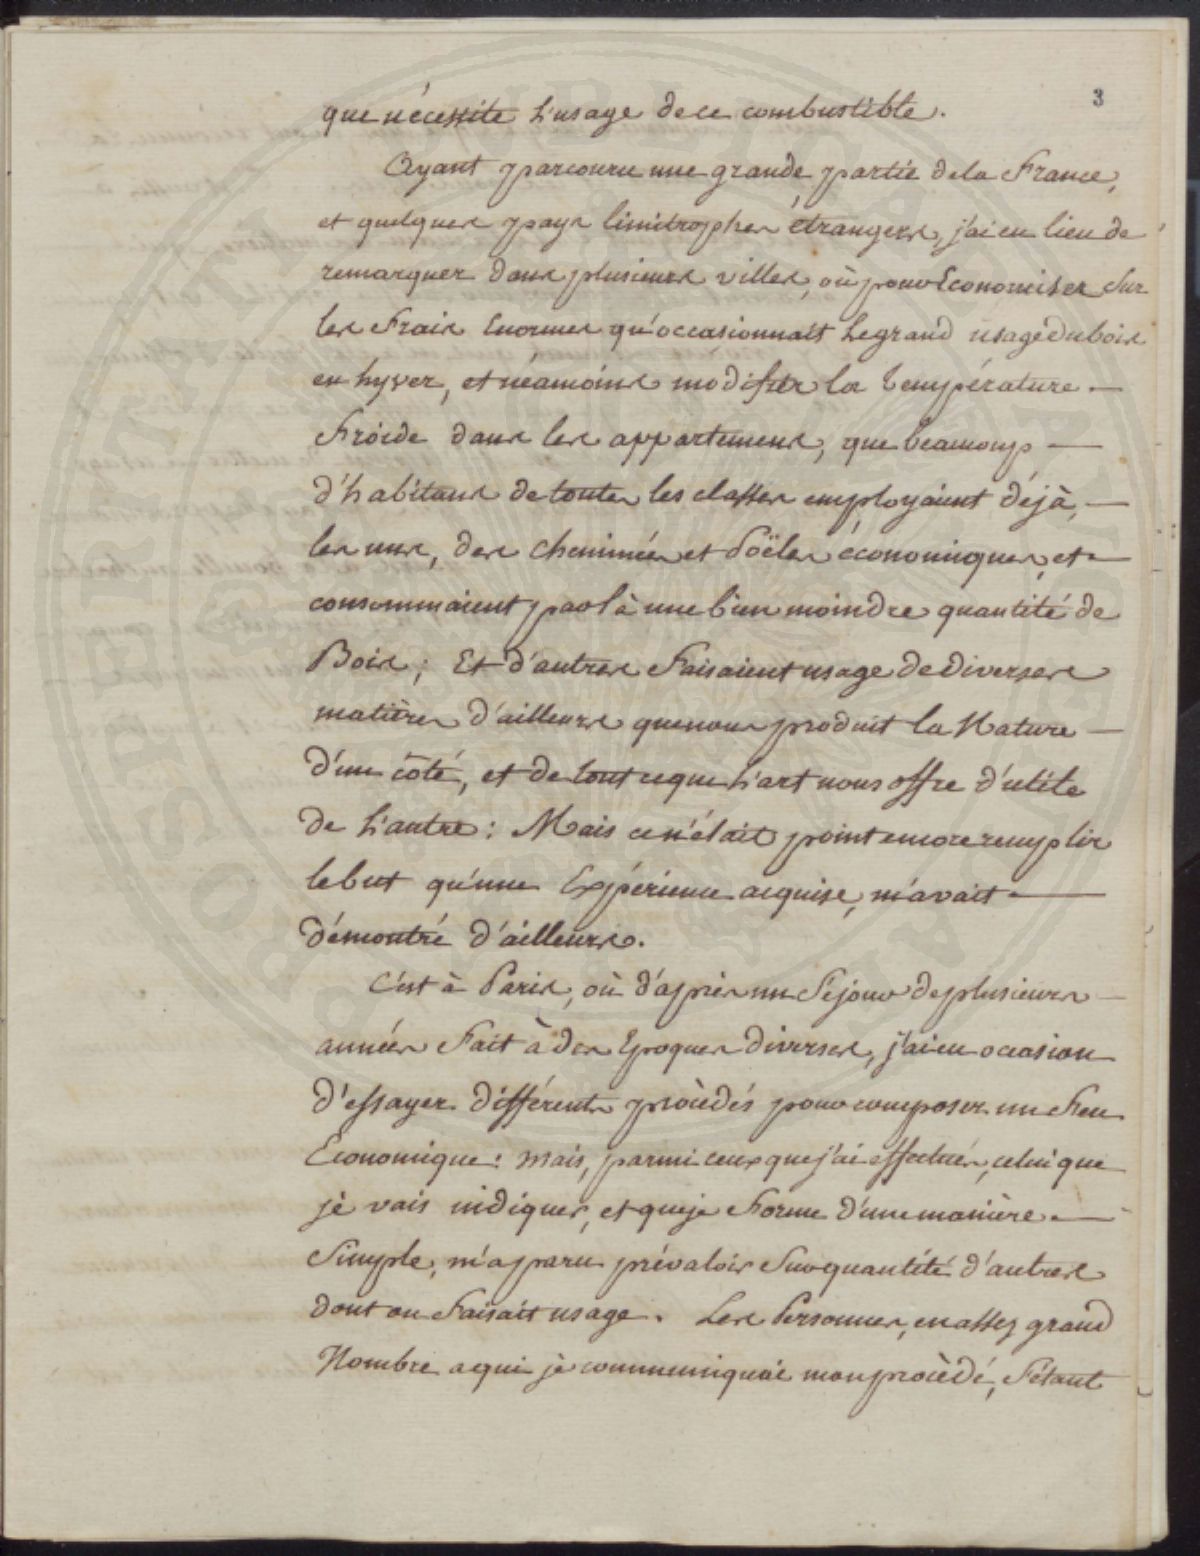 3
que nécessite l'usage de ce combustible.
Ayant parcouru une grande partie de la France,
et quelques pays limitrophes étrangers, j'ai eu lieu de
remarquer dans plusieurs villes, où pour Economiser Sur
les Frais Enormes qu'occasionnait Le grand usage du bois
en hyver, et néamoins modifier la température —
Froide dans les appartemens, que beaucoup —
d'habitans de toutes les classes employaient déjà, —
les uns, des cheminées et Poëles économiques, et —
consommaient par là une bien moindre quantité de
Bois; Et d'autres Faisaient usage de diverses
matières d'ailleurs que nous produit la Nature —
d'un côté, et de tout ce que l'art nous offre d'utile
de l'autre: Mais ce n'était point encore remplir
le but qu'une Expérience acquise, m'avait —
démontré d'ailleurs.
C'est à Paris, où d'après un Séjour de plusieurs —
années Fait à des Epoques diverses, j'ai eu occasion
d'essayer différents procédés pour composer un Feu
Economique: mais, parmi ceux que j'ai effectués, celui que
je vais indiquer, et que je Forme d'une manière —
Simple, m'a paru prévaloir Sur quantité d'autres
dont on Faisait usage. Les Personnes, en assez grand
Nombre a qui je communiquai mon procédé, S'étant
PROSPERITATI PUBLICAE